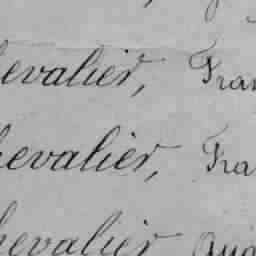 hevalier, Fran
hevalier, Fra
hevalier Aug